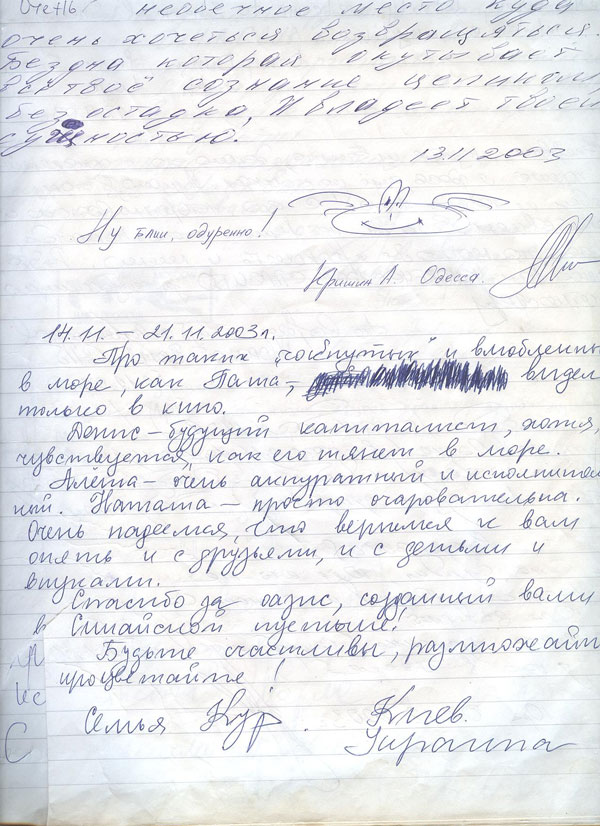 место куда
очень хочеться возвращяться.
Бездна которая окутывает
твоё сознание целиком
без остатка, И владеет твоей
сущностью.
13.11 2003
Ну блин, одуренно!
Кришин А. Одесса.
14.11. – 21.11.2003г.
Про таких и влюбленных
в море, как Паша, видел
только в кино.
Денис – будущий капиталист, хотя,
чувствуется, как его тянет в море.
Алёша – очень аккуратный и исполнитель
ный. Наташа – просто очаровательна.
Очень надеемся, что вернемся к вам
опять и с друзьями, и с детьми и
внуками.
Спасибо за оазис, созданный вами
в Синайской пустыне!
Будьте счастливы, размножайт
процветайте!
Семья Кур. Киев.
Украина